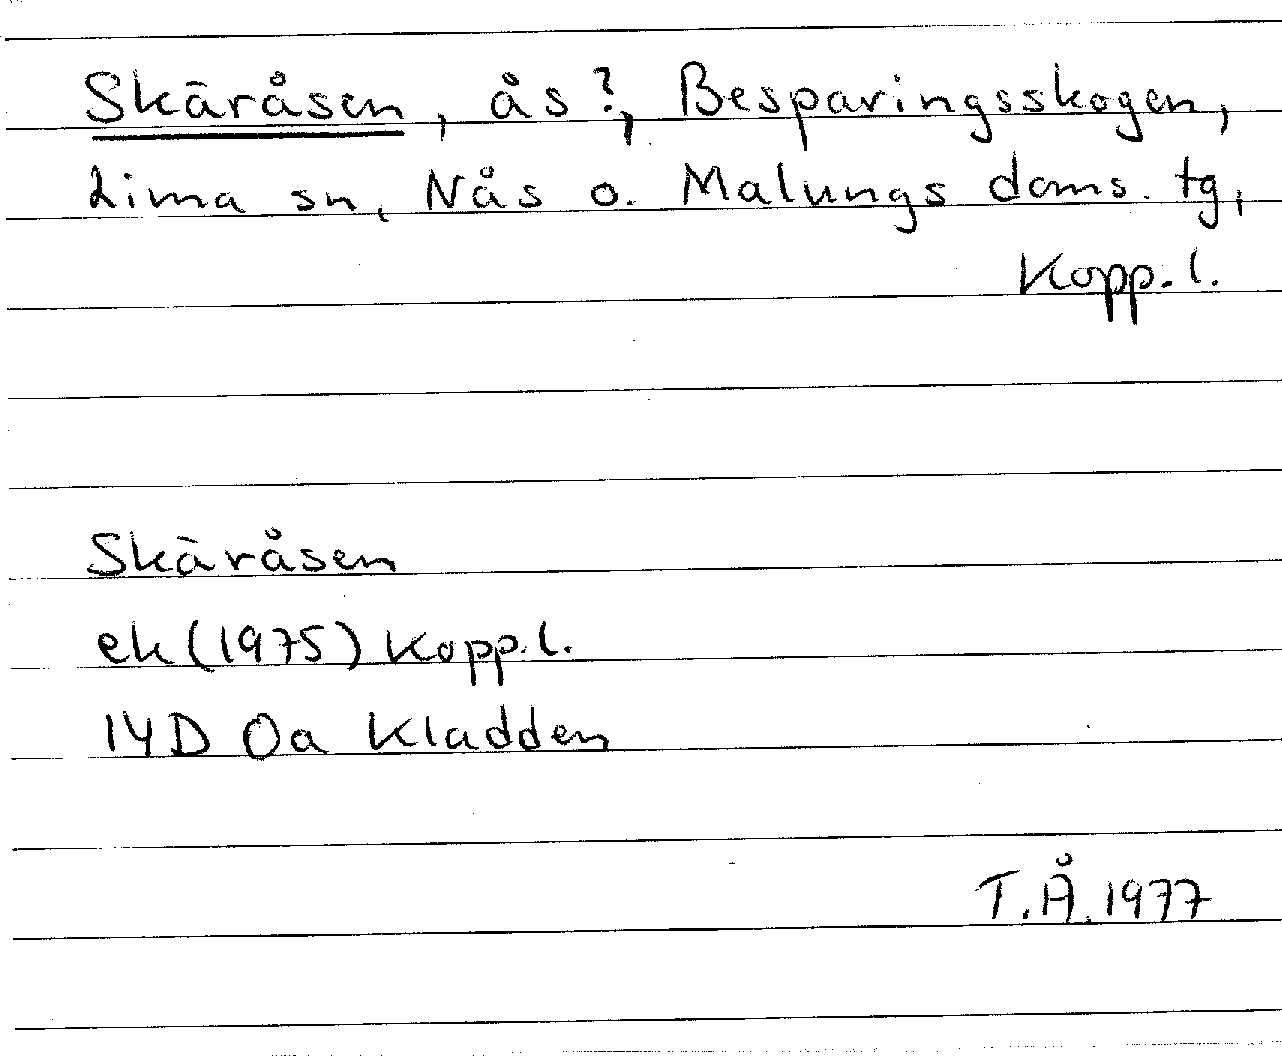 Skäråsen, ås?, Besparingsskogen,
Lima sn, Nås o. Malungs doms. tg,
Kopp. l.
Skäråsen
ek (1975) Kopp. l.
14D 0a Kladden
T.Å. 1977